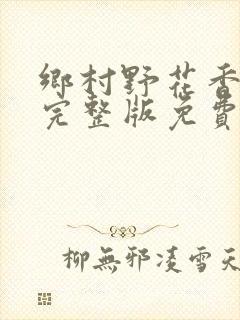 鄉村野花香
完整版免費
柳無邪凌雪天